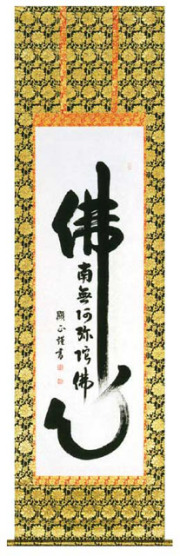 佛心
南無阿弥陀佛
正謹書